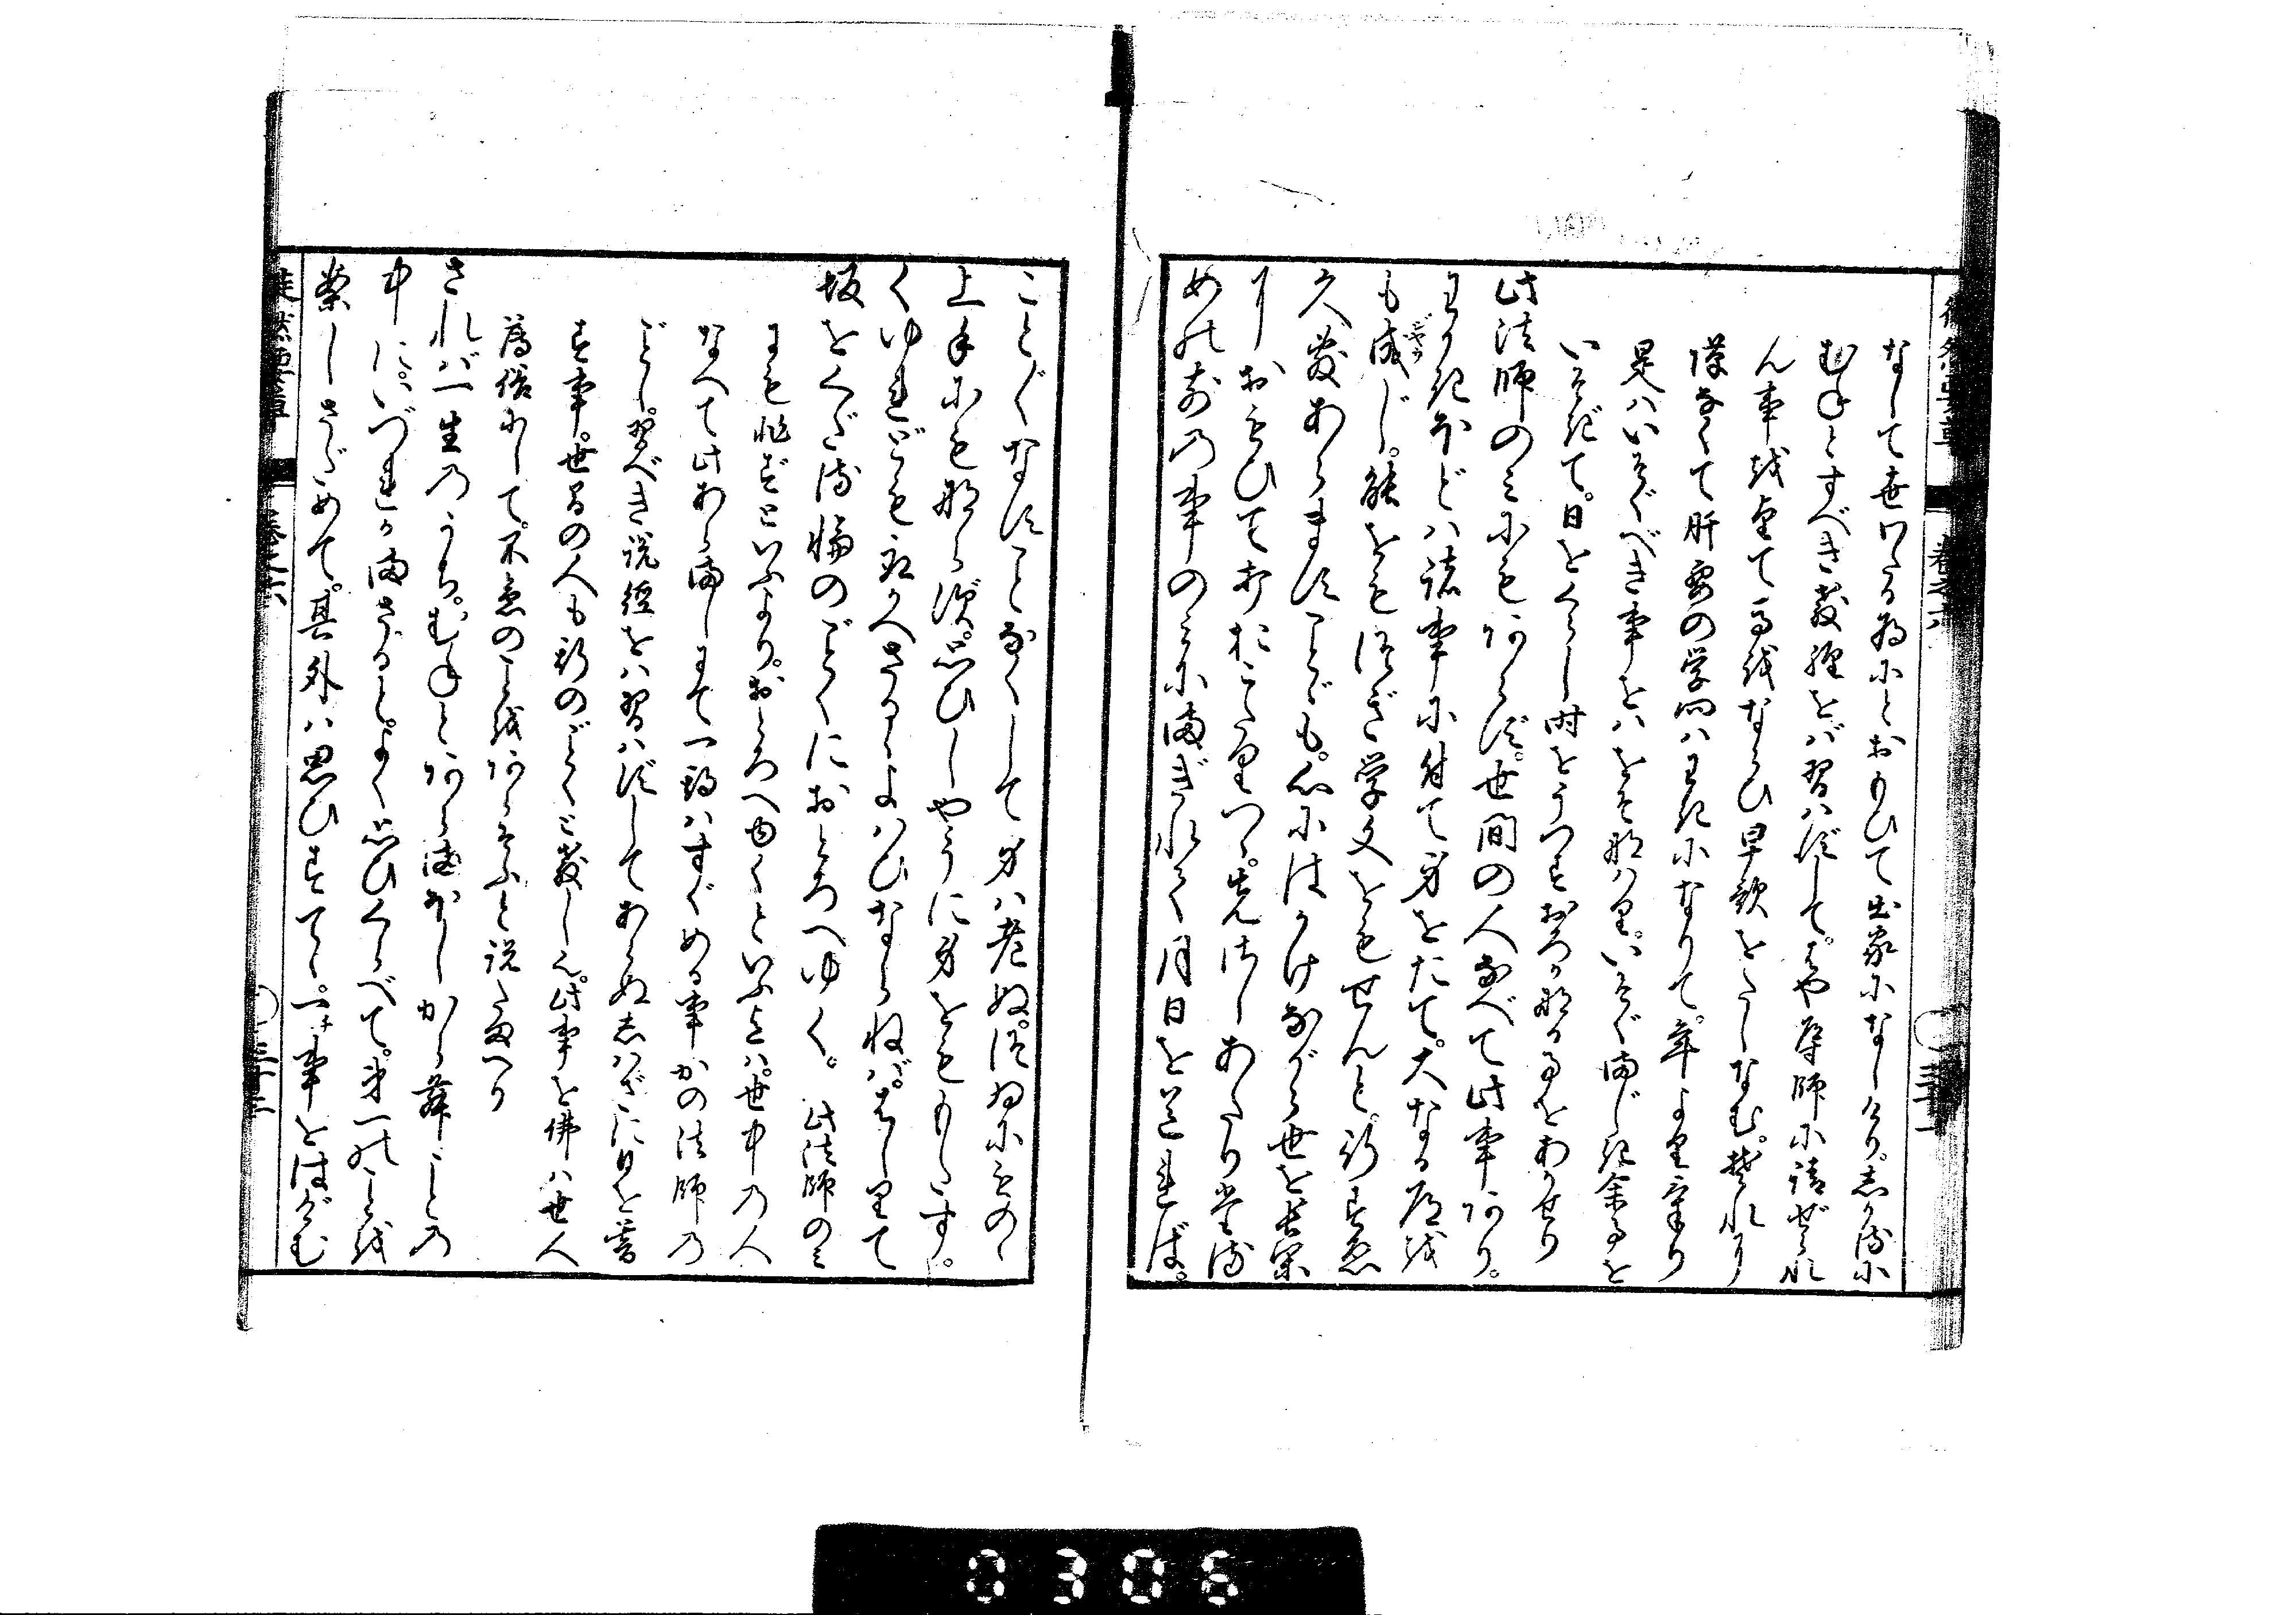 なして世わたる為にとおもひて出家になしけり。しかるに
むねとすべき教経をば習はずして。はや導師に請ぜられ
ん事を望て馬をならひ早歌をたしなむ。それより
隙なくて肝要の学問はわきになりて。年よりたり
是はいそぐべき事をはをそなはり。いそぐまじき余事を
いそぎて。日をくらし時をうつすおろかなる事をあかせり
此法師のみにもあらず。世間の人なべて此事あり。
わかきほどは諸事に付て身をたて。大なる道を
も成じ。能をもつぎ学文をもせんと。行すゑ
久敷あらますことども。心にはかけながら世を長閑
におもひて打おこたりつゝ。先さしあたりたる
めの前の事のみにまぎれて月日を送れば。
ことごとなすことなくして身は老ぬ。つゐにものゝ
上手にもならず。思ひしやうに身をももたず。
くゆれどもとりかへさるゝよはひならねば。はしりて
坂をくだる輪のごとくにおとろへゆく。 此法師のみ
にも非ずといふより。おとろへゆくといふまでは。世中の人
なべて此あらましにて一段はすぐめる事かの法師の
ごとし。習べき説経をは習はずしてあらぬしわざに日を暮
す事。世間の人も行のごとくと教しへ。此事を佛は世人
薄俗にして。不急のことをあらそふと説たまへり
されば一生のうち。むねとあらまほしからむことの
中に。いづれかまさると。よく思ひくらべて。第一のことを
案じさだめて。其外は思ひすてゝ。一事をはげむ
徒然草 巻之六 三十二